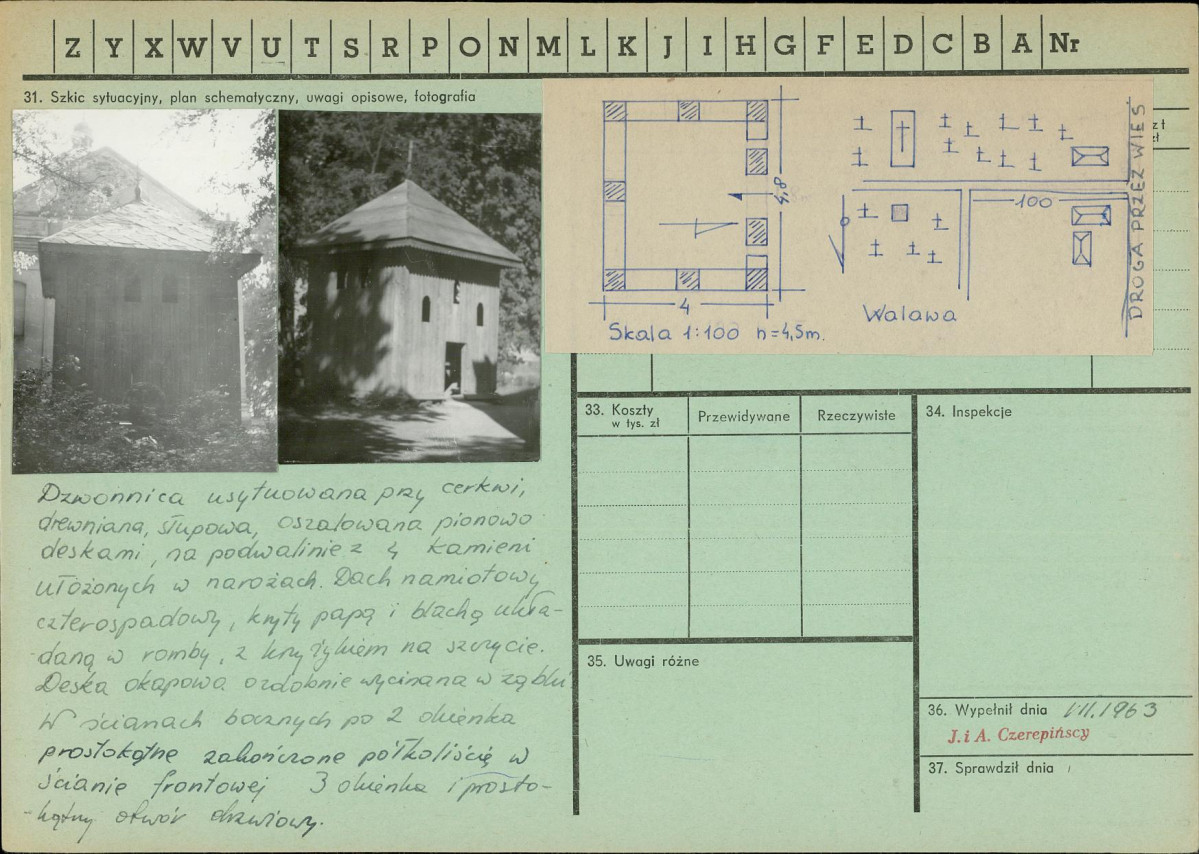 Z Y X W V U T S R P O N M L K J I H G F E D C B A Nr
31. Szkic sytuacyjny, plan schematyczny, uwagi opisowe, fotografia
zt
zł
4,8
4
Skala 1:100 h=4,5m.
100
Walawa
DROGA PRZEZ WIEŚ
Dzwonnica usytuowana przy cerkwi,
drewniana, słupowa, oszalowana pionowo
deskami, na podwalinie z 4 kamieni
ułożonych w narożach. Dach namiotowy
czterospadowy, kryty papą i blachą ukła-
daną w romby, z krzyżykiem na szczycie.
Deska okapowa ozdobnie wycinana w ząbki.
W ścianach bocznych po 2 okienka
prostokątne zakończone półkoliście w
ścianie frontowej 3 okienka i prosto-
-kątny otwór drzwiowy.
33. Koszty
w tys. zł
Przewidywane
Rzeczywiste
34. Inspekcje
35. Uwagi różne
36. Wypełnił dnia VII.1963
J. i A. Czerepińscy
37. Sprawdził dnia